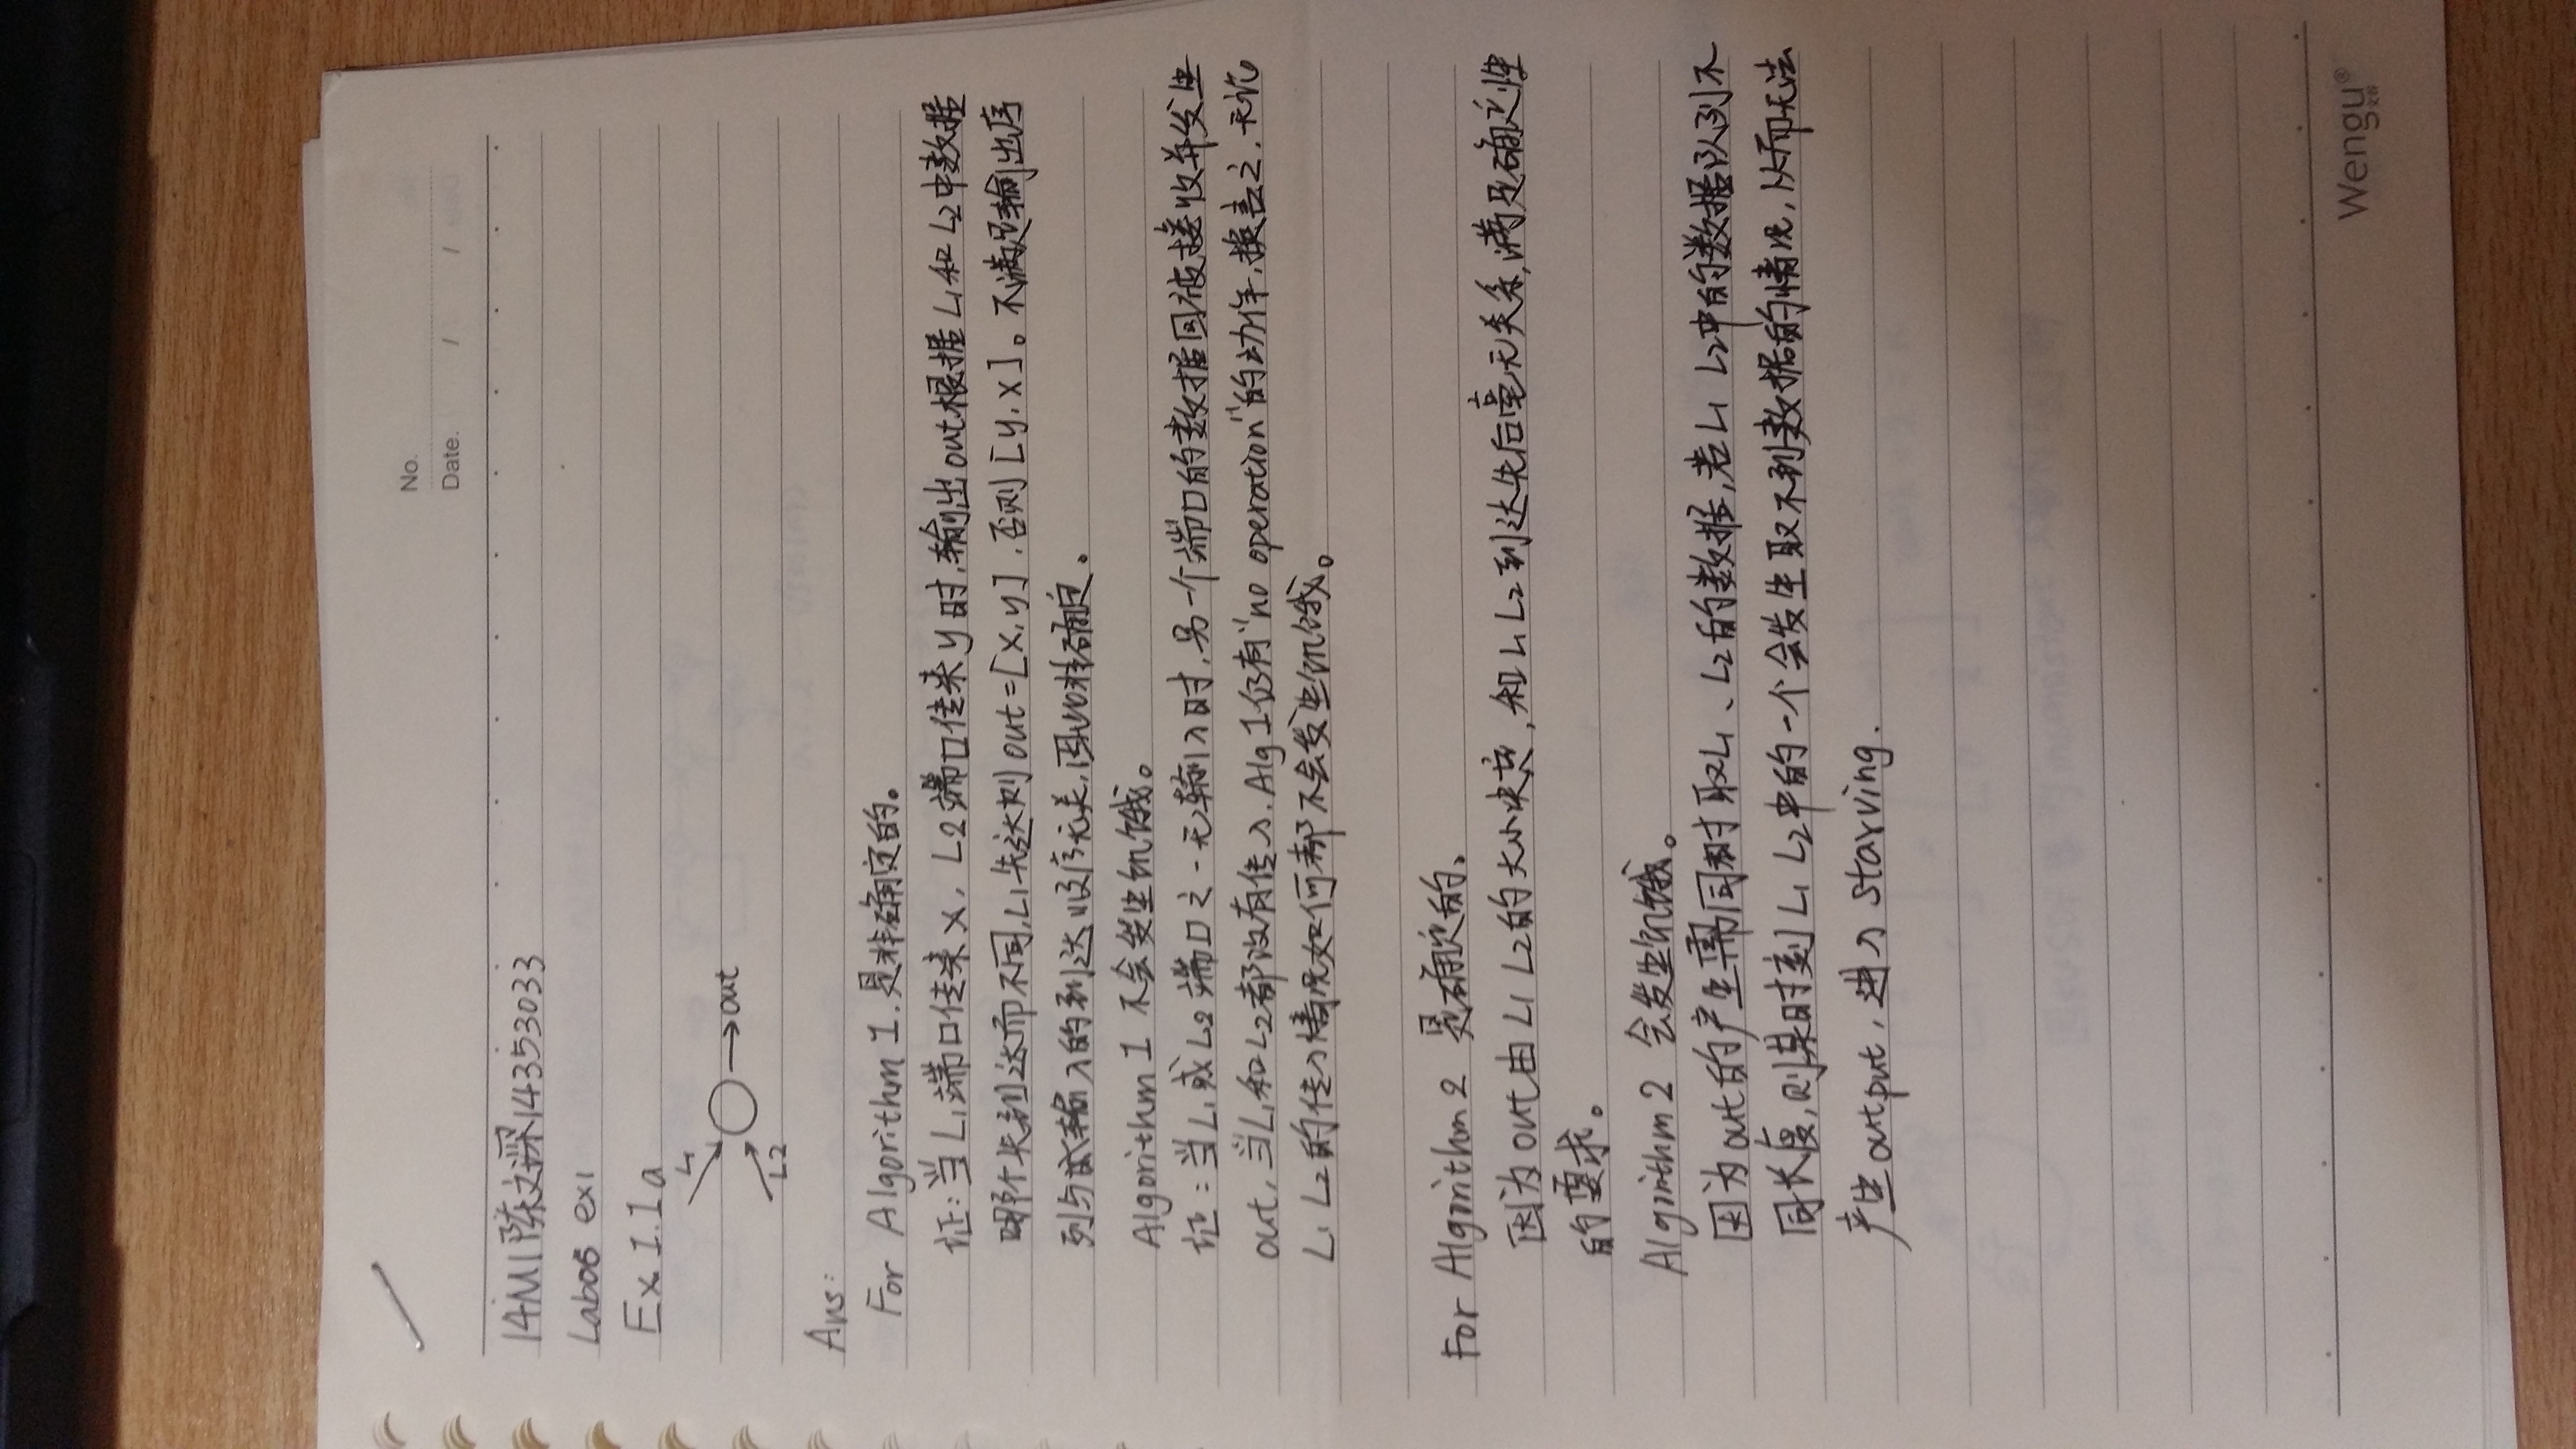 No.
Date. / /
14M1陈文深14353033
Lab05 ex1
Ex 1.1a
L1
→out
L2
Ans:
For Algorithm 1.是非确定的。
证:当L1端口传来x, L2端口传来y时,输出out根据L1和L2中数据
哪个先到达而不同,L1先达则out=[x,y].否则[y,x]。不满足输出序
列与输入的到达顺序无关,因此非确定。
Algorithm 1 不会发生饥饿。
证:当L1或L2端口之一无输入时,另一个端口的数据回被接收并发生
out,当L1和L2都没有传入,Alg 1仍有"no operation"的动作,换言之,无论
L1 L2的传入情况如何都不会发生饥饿。
For Algorithm 2 是确定的。
因为out由L1 L2的大小决定,和L1 L2到达先后毫无关系,满足确定性
的要求。
Algorithm 2 会发生饥饿。
因为out的产生需同时取L1、L2的数据,若L1 L2中的数据队列不
同长度,则某时刻L1 L2中的一个会发生取不到数据的情况,从而无法
产生output,进入starving.
Wengu®